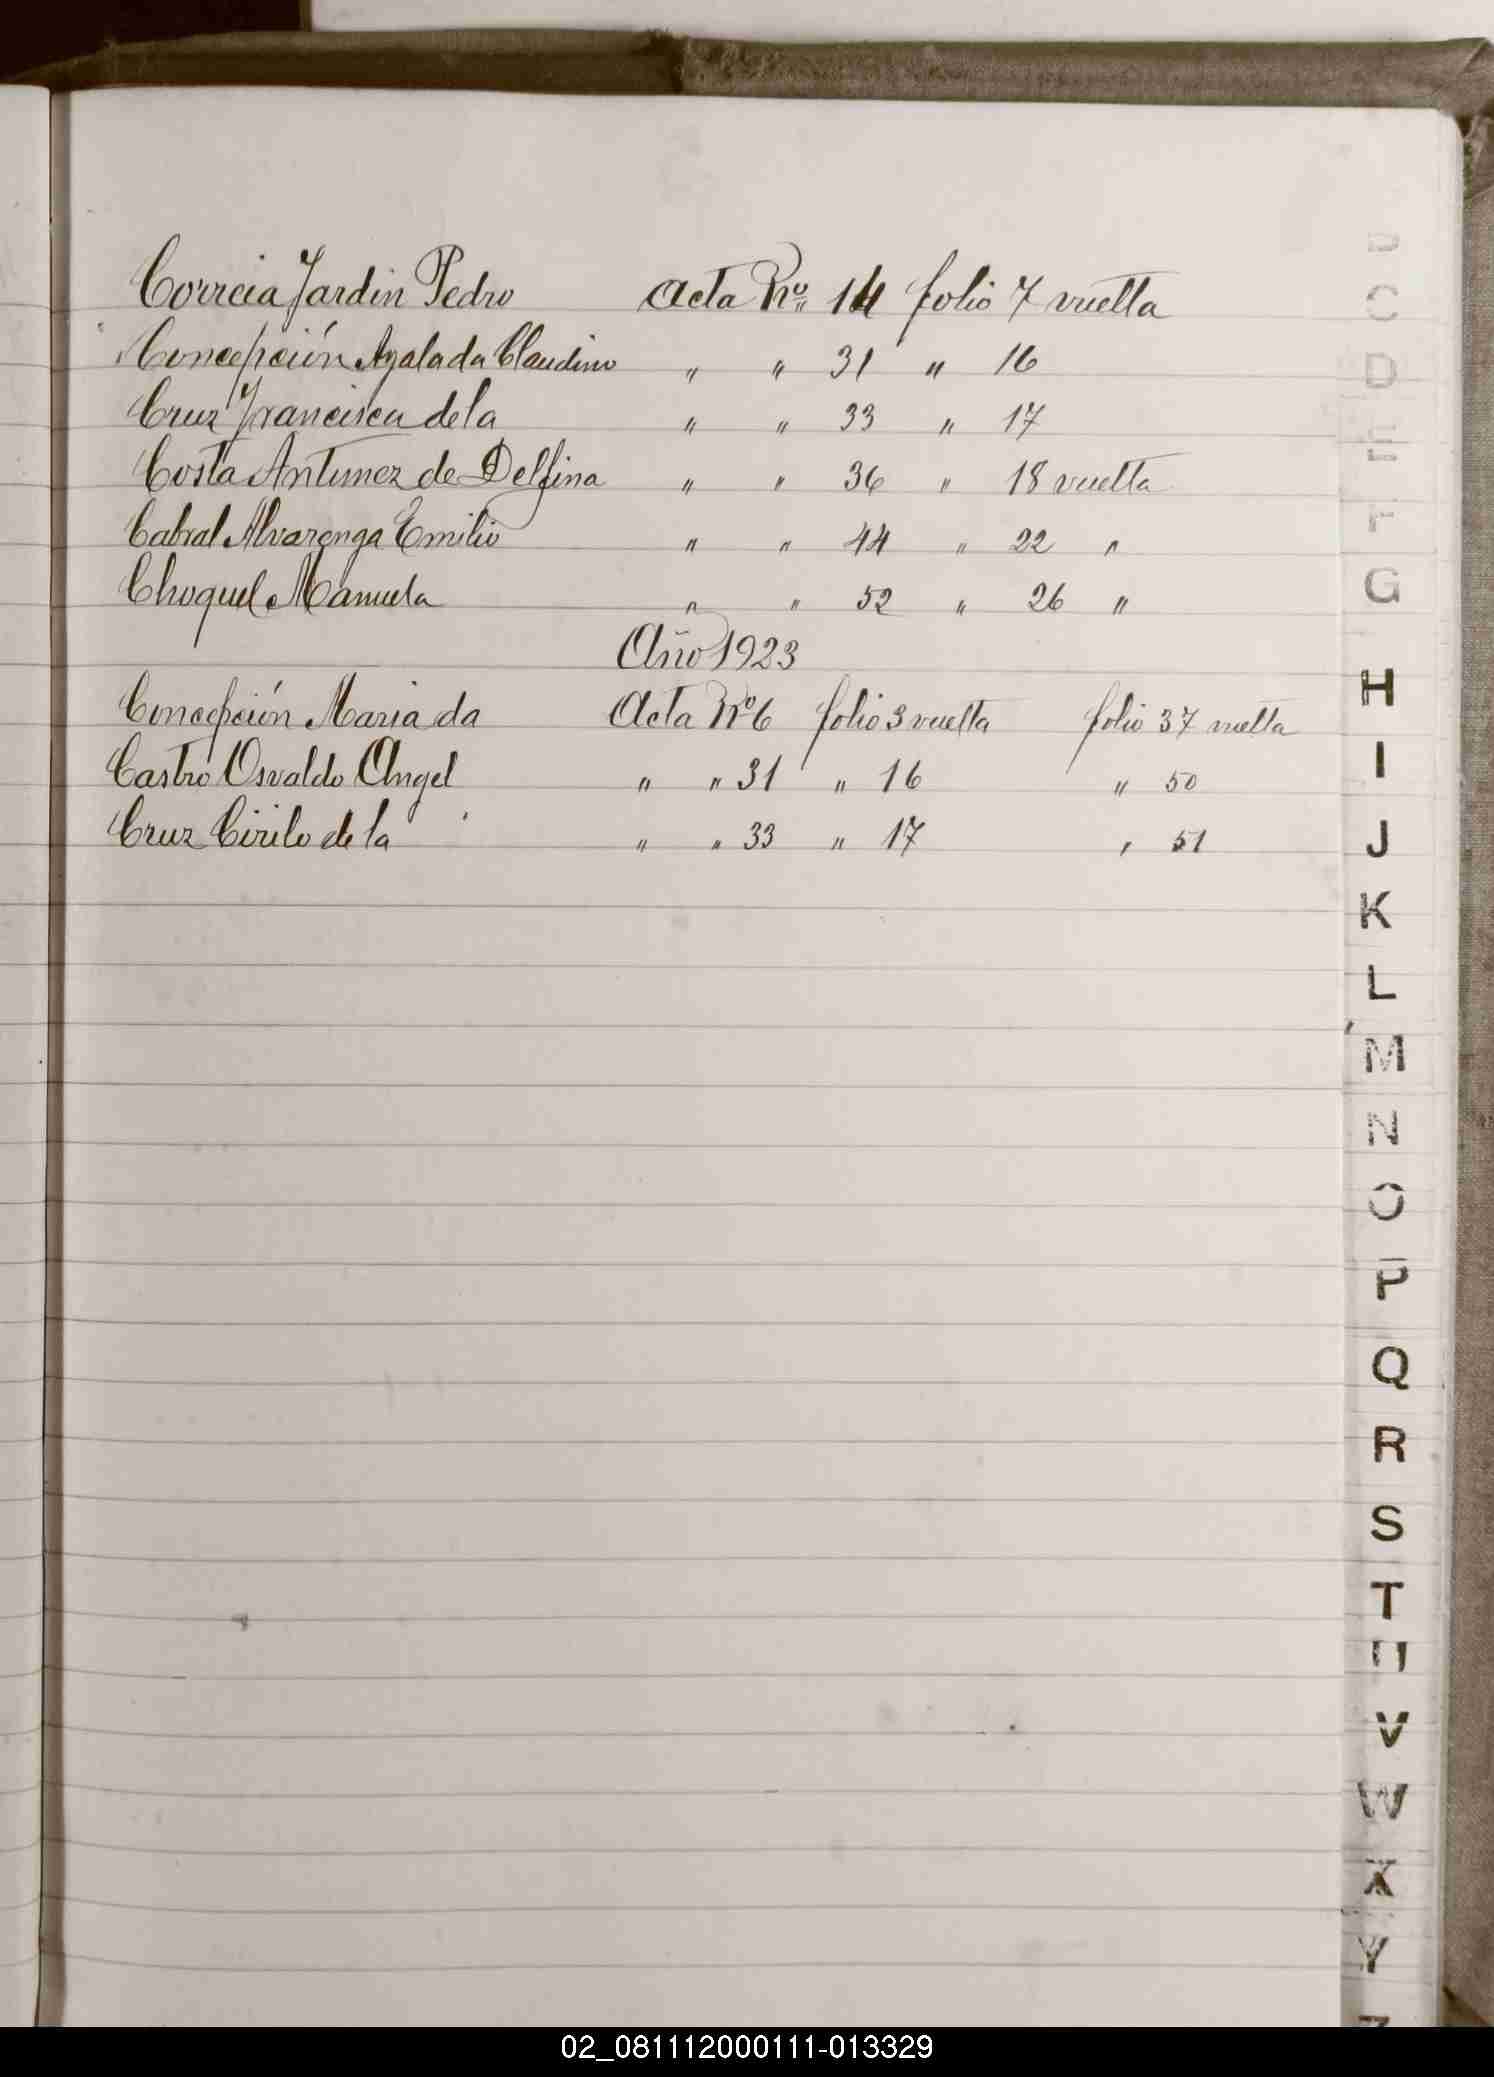 Correia Jardin Pedro Acta Nº 14 folio 7 vuelta
Concepción Azalada Claudino " " 31 " 16
Cruz Francisca de la " " 33 " 17
Costa Antunez de Delfina " " 36 " 18 vuelta
Cabral Alvarenga Emilio " " 44 " 22 "
Choquel Manuela " " 52 " 26 "
Año 1923
Concepción Maria da Acta Nº 6 folio 3 vuelta folio 37 vuelta
Castro Osvaldo Angel " " 31 " 16 " 50
Cruz Cirilo de la " " 33 " 17 " 51
C
D
E
F
G
H
I
J
K
L
M
N
O
P
Q
R
S
T
U
V
W
X
Y
02_081112000111-013329